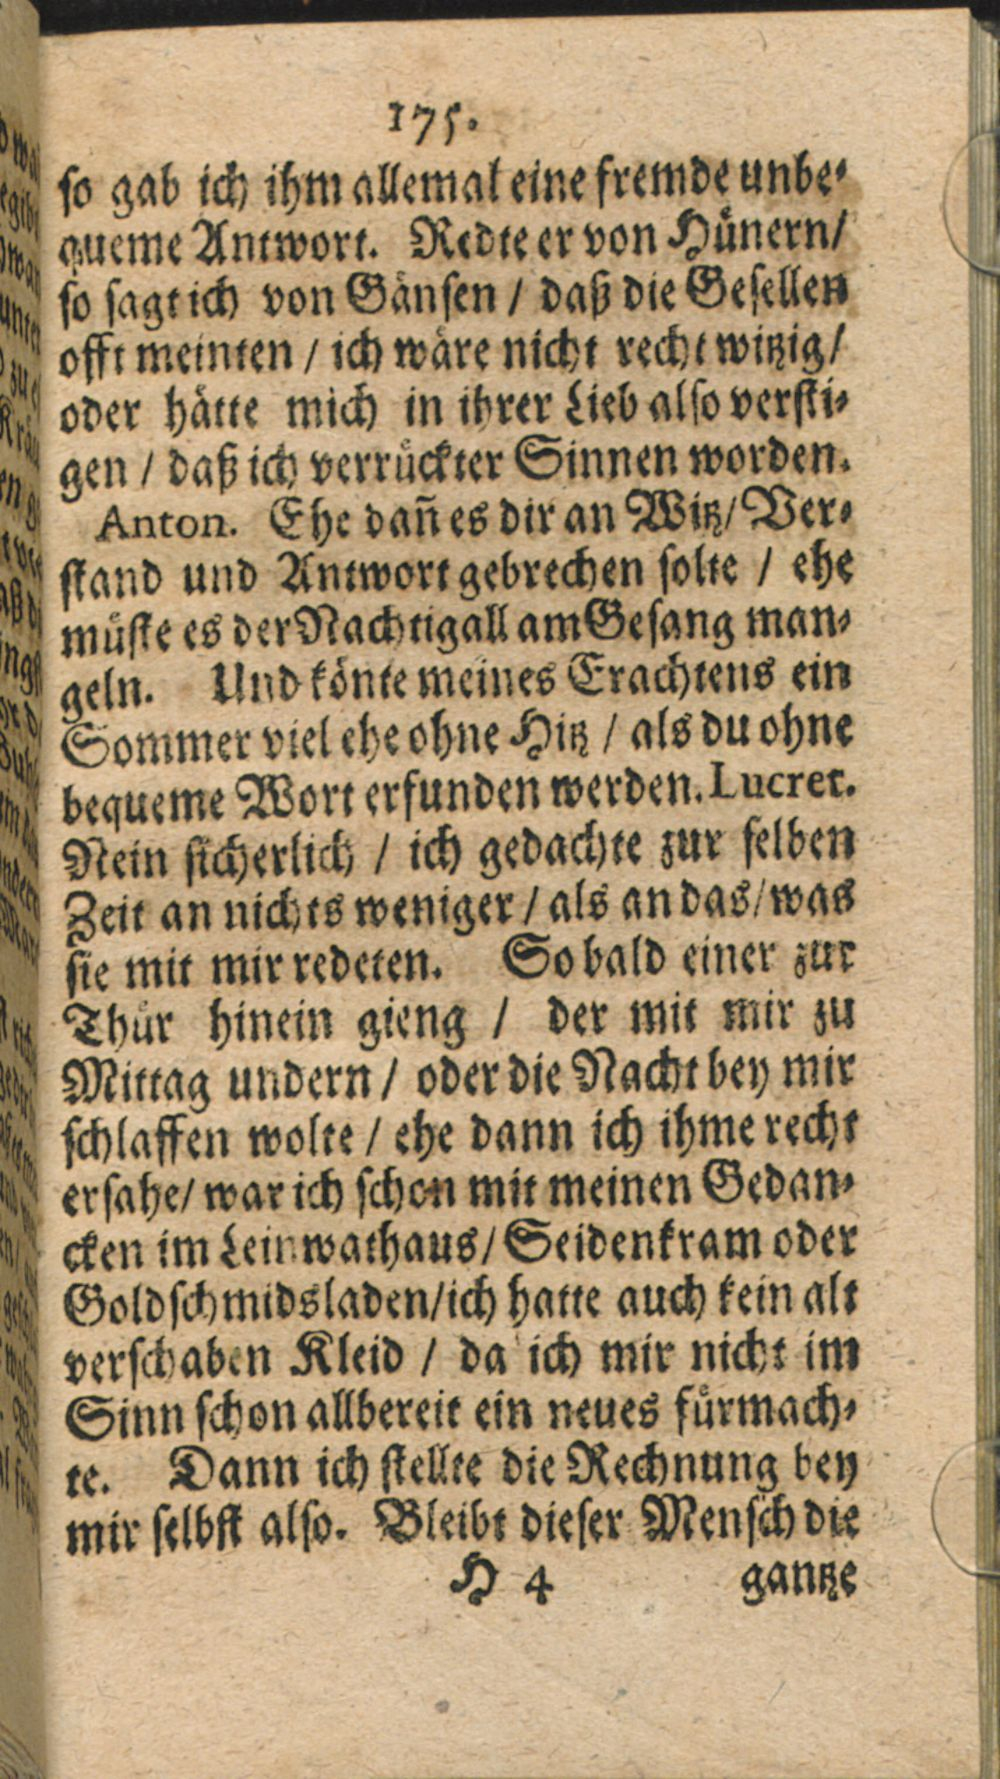 175.
so gab ich ihm allemal eine fremde unbe-
queme Antwort. Redte er von Hünern/
so sagt ich von Gänsen / daß die Gesellen
offt meinten / ich wäre nicht recht witzig/
oder hätte mich in ihrer Lieb also versti-
gen / daß ich verrückter Sinnen worden.
Anton. Ehe dañ es dir an Witz/ Ver-
stand und Antwort gebrechen solte / ehe
müste es der Nachtigall am Gesang man-
geln. Und könte meines Erachtens ein
Sommer viel ehe ohne Hitz / als du ohne
bequeme Wort erfunden werden. Lucret.
Nein sicherlich / ich gedachte zur selben
Zeit an nichts weniger / als an das/ was
sie mit mir redeten. So bald einer zur
Thür hinein gieng / der mit mir zu
Mittag undern / oder die Nacht bey mir
schlaffen wolte / ehe dann ich ihme recht
ersahe/ war ich schon mit meinen Gedan-
cken im Leinwathaus/ Seidenkram oder
Goldschmidsladen/ich hatte auch kein alt
verschaben Kleid / da ich mir nicht im
Sinn schon allbereit ein neues fürmach-
te. Dann ich stellte die Rechnung bey
mir selbst also. Bleibt dieser Mensch die
H 4 gantze